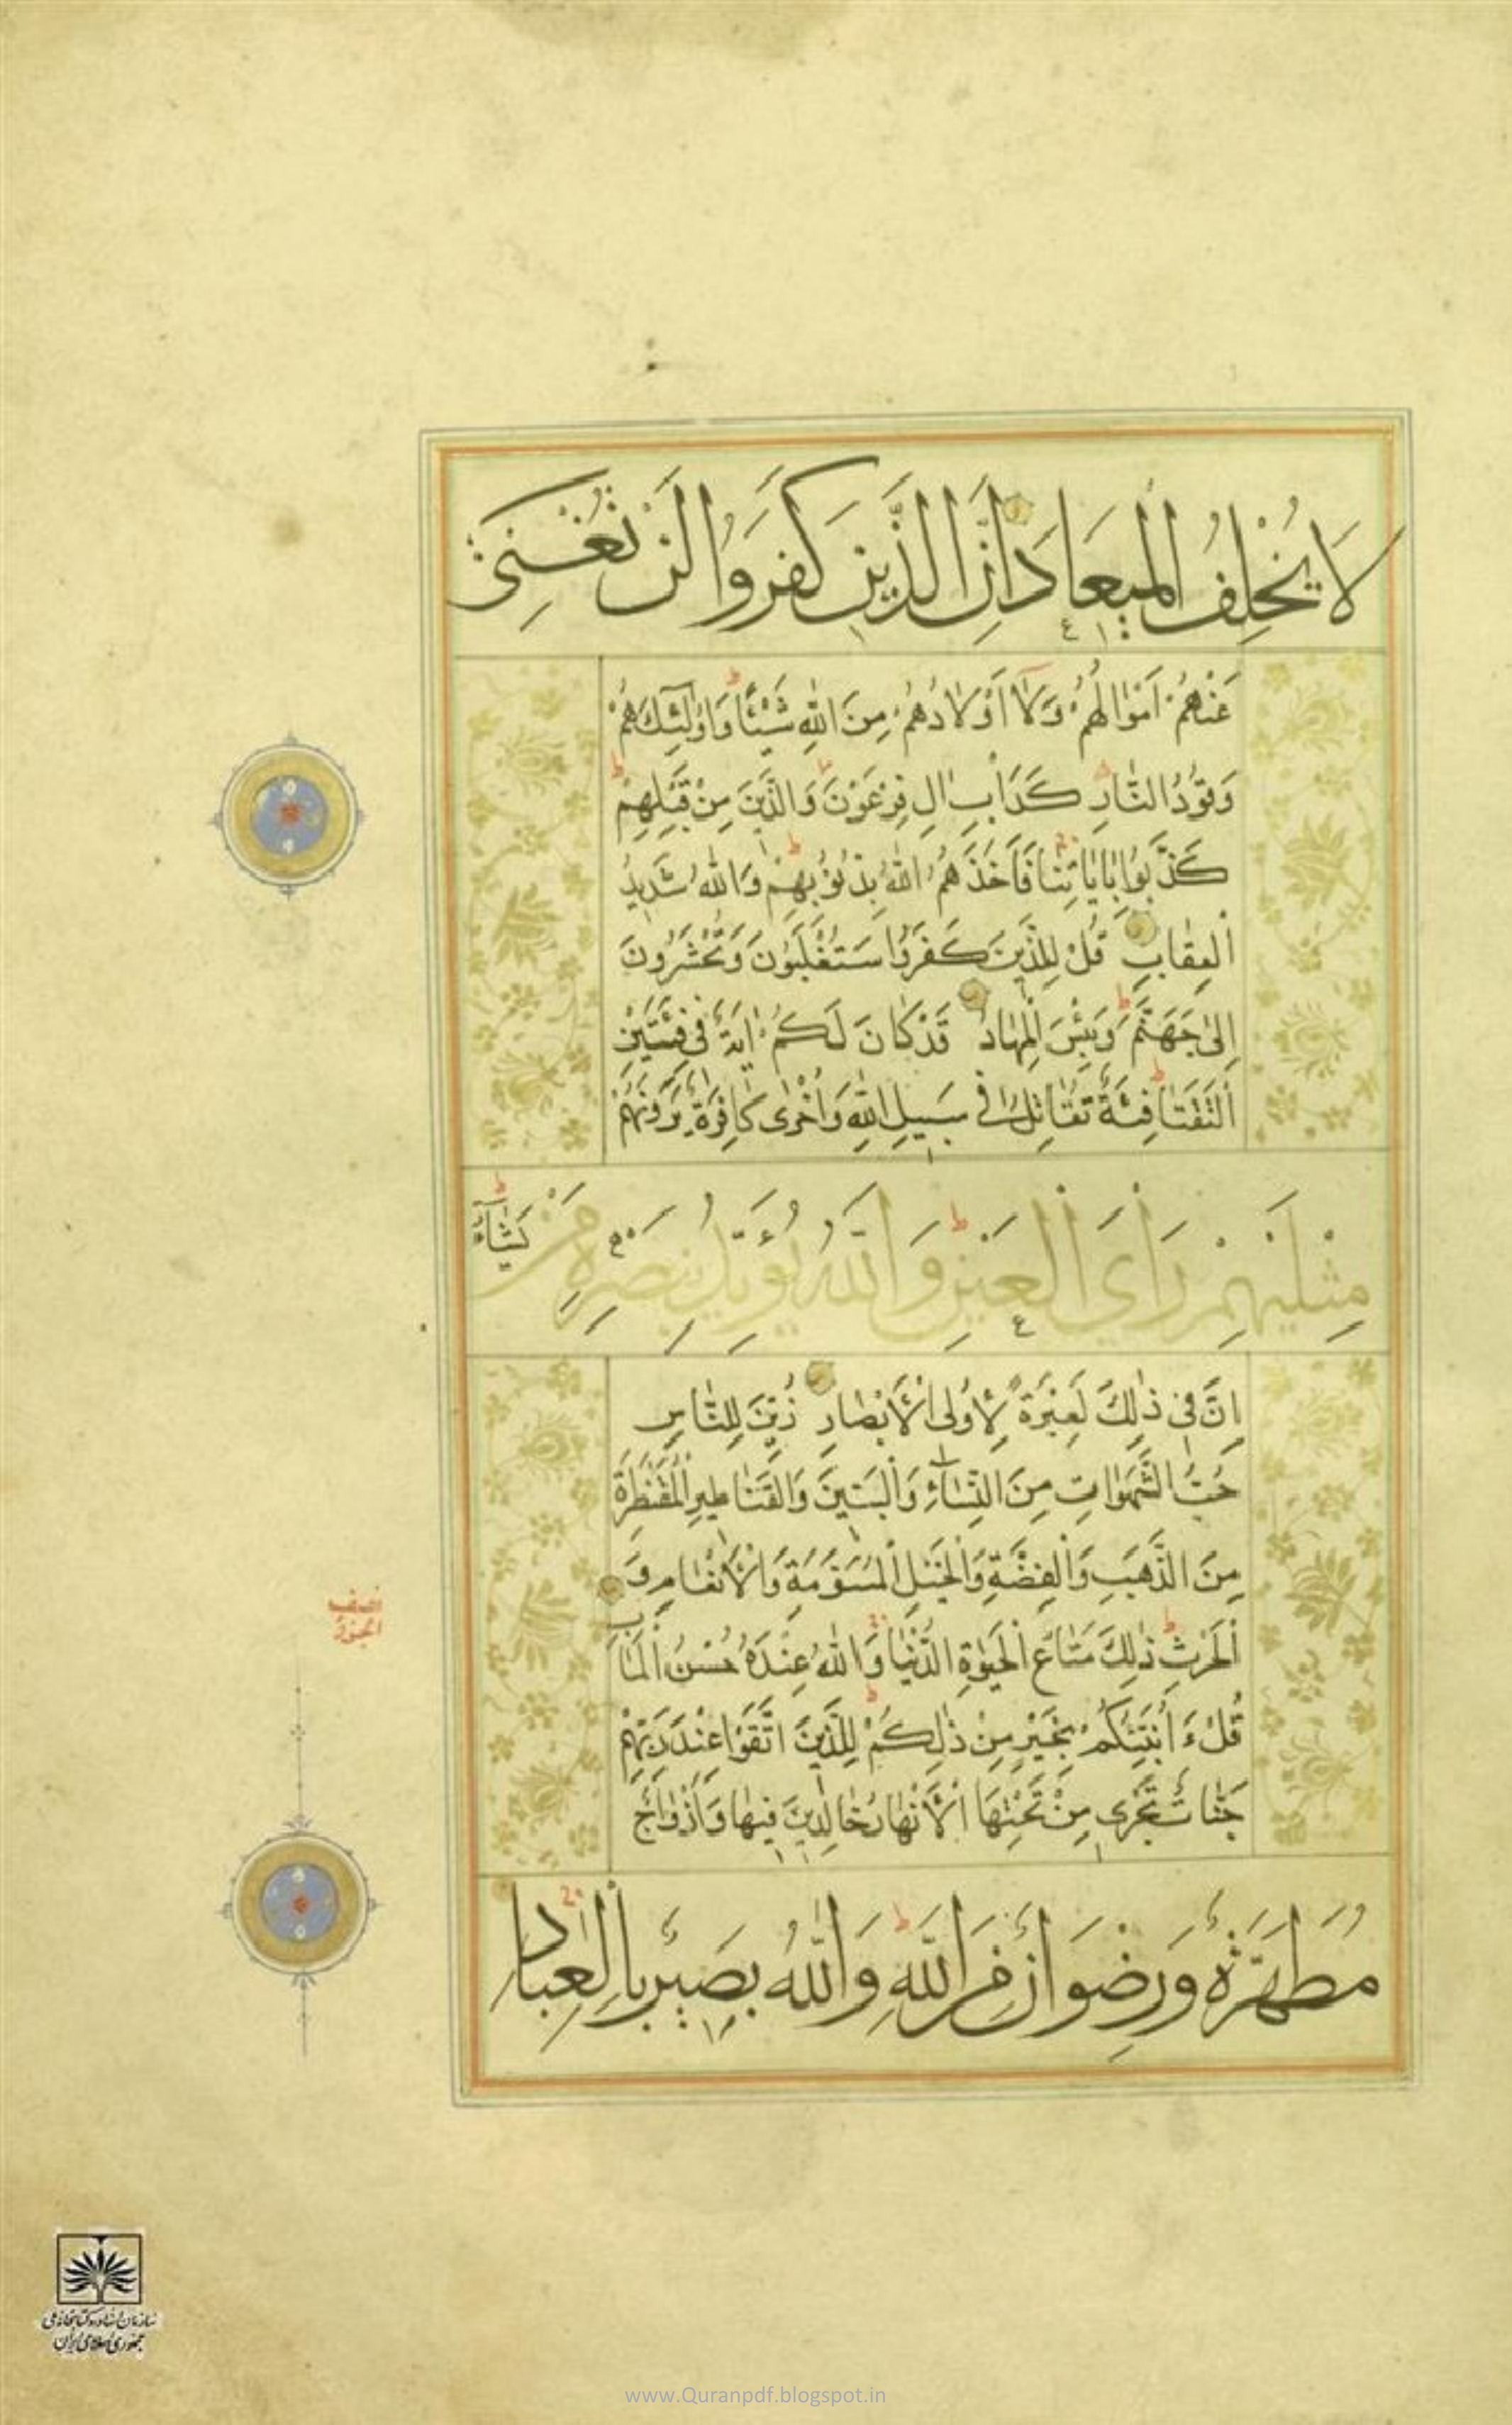 لَا يُخْلِفُ الْمِيعَادَ اِنَّ الَّذِينَ كَفَرُوا لَنْ تُغْنِيَ
عَنْهُمْ اَمْوَالُهُمْ وَلَا اَوْلَادُهُمْ مِنَ اللّٰهِ شَيْئًا وَاُولٰئِكَ هُمْ
وَقُودُ النَّارِ كَدَاْبِ اٰلِ فِرْعَوْنَ وَالَّذِينَ مِنْ قَبْلِهِمْ
كَذَّبُوا بِاٰيَاتِنَا فَاَخَذَهُمُ اللّٰهُ بِذُنُوبِهِمْ وَاللّٰهُ شَدِيدُ
الْعِقَابِ قُلْ لِلَّذِينَ كَفَرُوا سَتُغْلَبُونَ وَتُحْشَرُونَ
اِلٰى جَهَنَّمَ وَبِئْسَ الْمِهَادُ قَدْ كَانَ لَكُمْ اٰيَةٌ فِي فِئَتَيْنِ
الْتَقَتَا فِئَةٌ تُقَاتِلُ فِي سَبِيلِ اللّٰهِ وَاُخْرٰى كَافِرَةٌ يَرَوْنَهُمْ
مِثْلَيْهِمْ رَاْيَ الْعَيْنِ وَاللّٰهُ يُؤَيِّدُ بِنَصْرِهِ مَنْ يَشَاءُ
اِنَّ فِي ذٰلِكَ لَعِبْرَةً لِاُولِي الْاَبْصَارِ زُيِّنَ لِلنَّاسِ
حُبُّ الشَّهَوَاتِ مِنَ النِّسَاءِ وَالْبَنِينَ وَالْقَنَاطِيرِ الْمُقَنْطَرَةِ
مِنَ الذَّهَبِ وَالْفِضَّةِ وَالْخَيْلِ الْمُسَوَّمَةِ وَالْاَنْعَامِ وَ
الْحَرْثِ ذٰلِكَ مَتَاعُ الْحَيٰوةِ الدُّنْيَا وَاللّٰهُ عِنْدَهُ حُسْنُ الْمَاٰبِ
قُلْ ءَاُنَبِّئُكُمْ بِخَيْرٍ مِنْ ذٰلِكُمْ لِلَّذِينَ اتَّقَوْا عِنْدَ رَبِّهِمْ
جَنَّاتٌ تَجْرِي مِنْ تَحْتِهَا الْاَنْهَارُ خَالِدِينَ فِيهَا وَاَزْوَاجٌ
مُطَهَّرَةٌ وَرِضْوَانٌ مِنَ اللّٰهِ وَاللّٰهُ بَصِيرٌ بِالْعِبَادِ
نصف
الجزو
سازمان اسناد و کتابخانه ملی
جمهوری اسلامی ایران
www.Quranpdf.blogspot.in